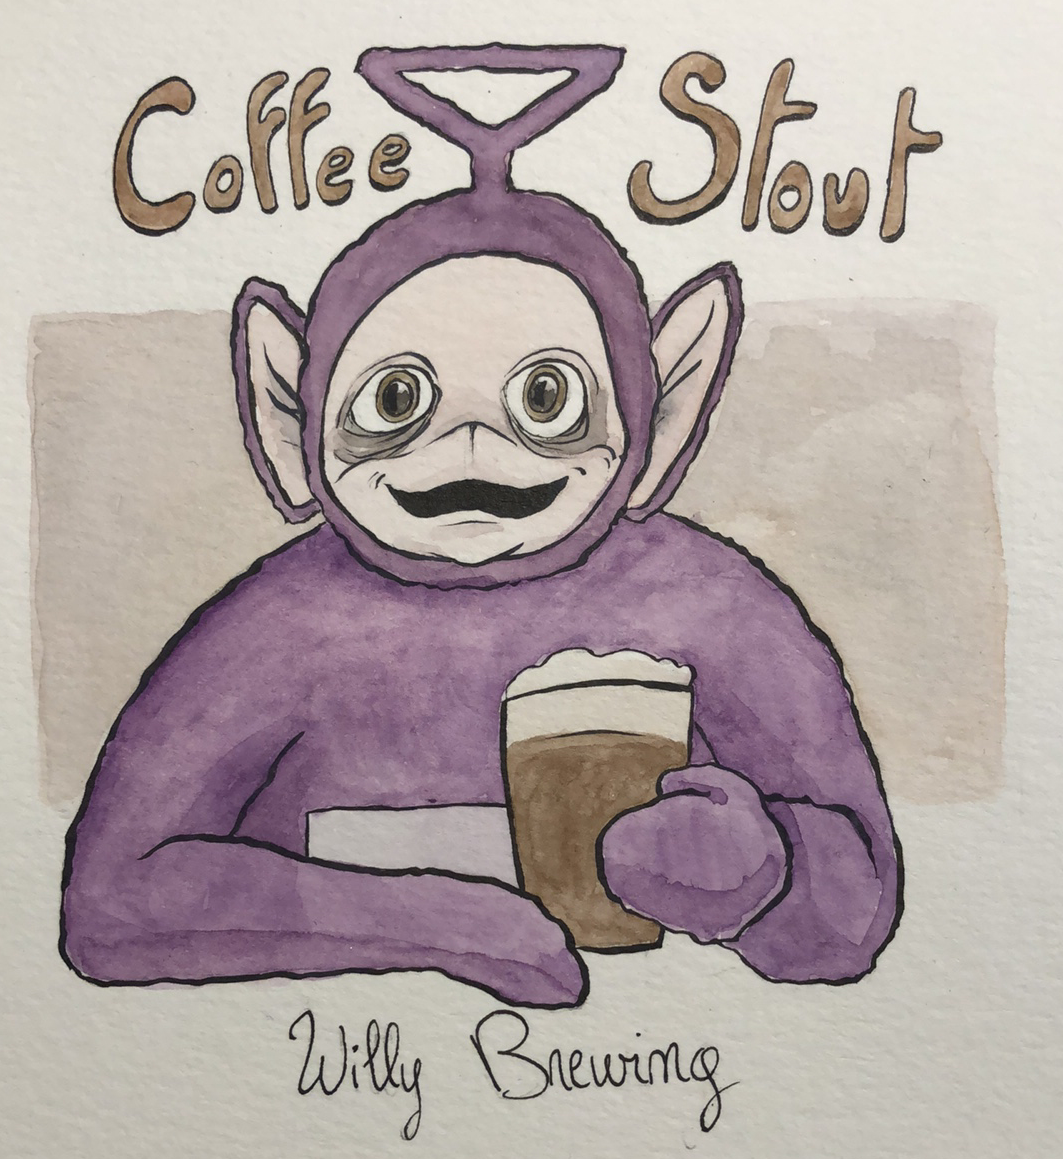 Coffee Stout
Willy Brewing